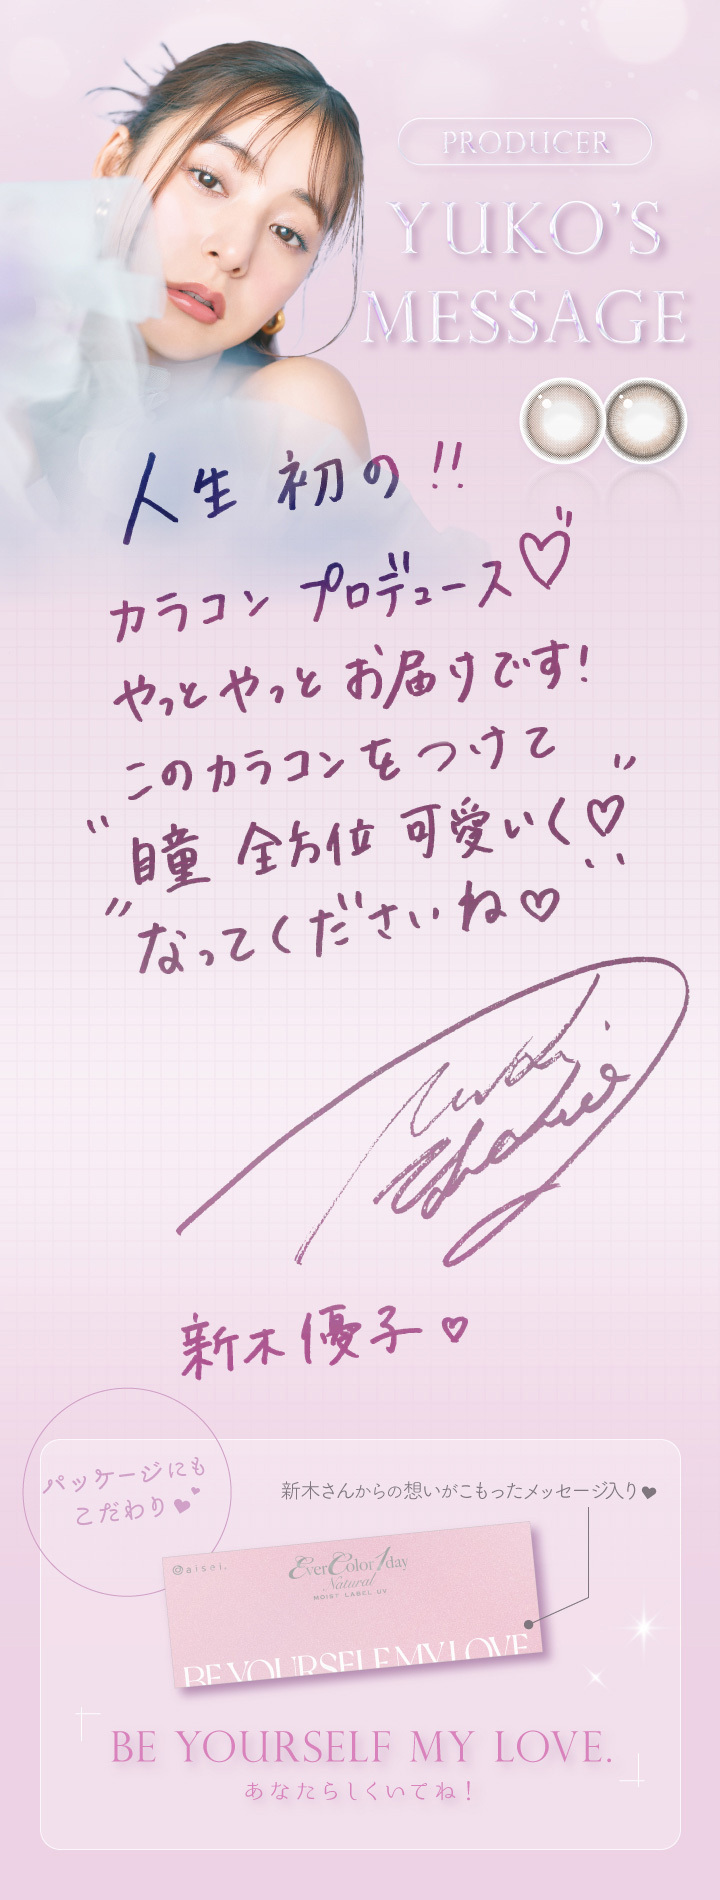 PRODUCER
YUKO'S
MESSAGE
人生 初の!!
カラコン プロデュース♡
やっとやっと お届けです!
このカラコンを つけて
"瞳 全方位 可愛いく♡"
なってくださいね♡
新木優子♡
パッケージにも
こだわり♥
新木さんからの想いがこもったメッセージ入り♥
@aisei.
EverColor1day
Natural
MOIST LABEL UV
BE YOURSELF MY LOVE
BE YOURSELF MY LOVE.
あなたらしくいてね!